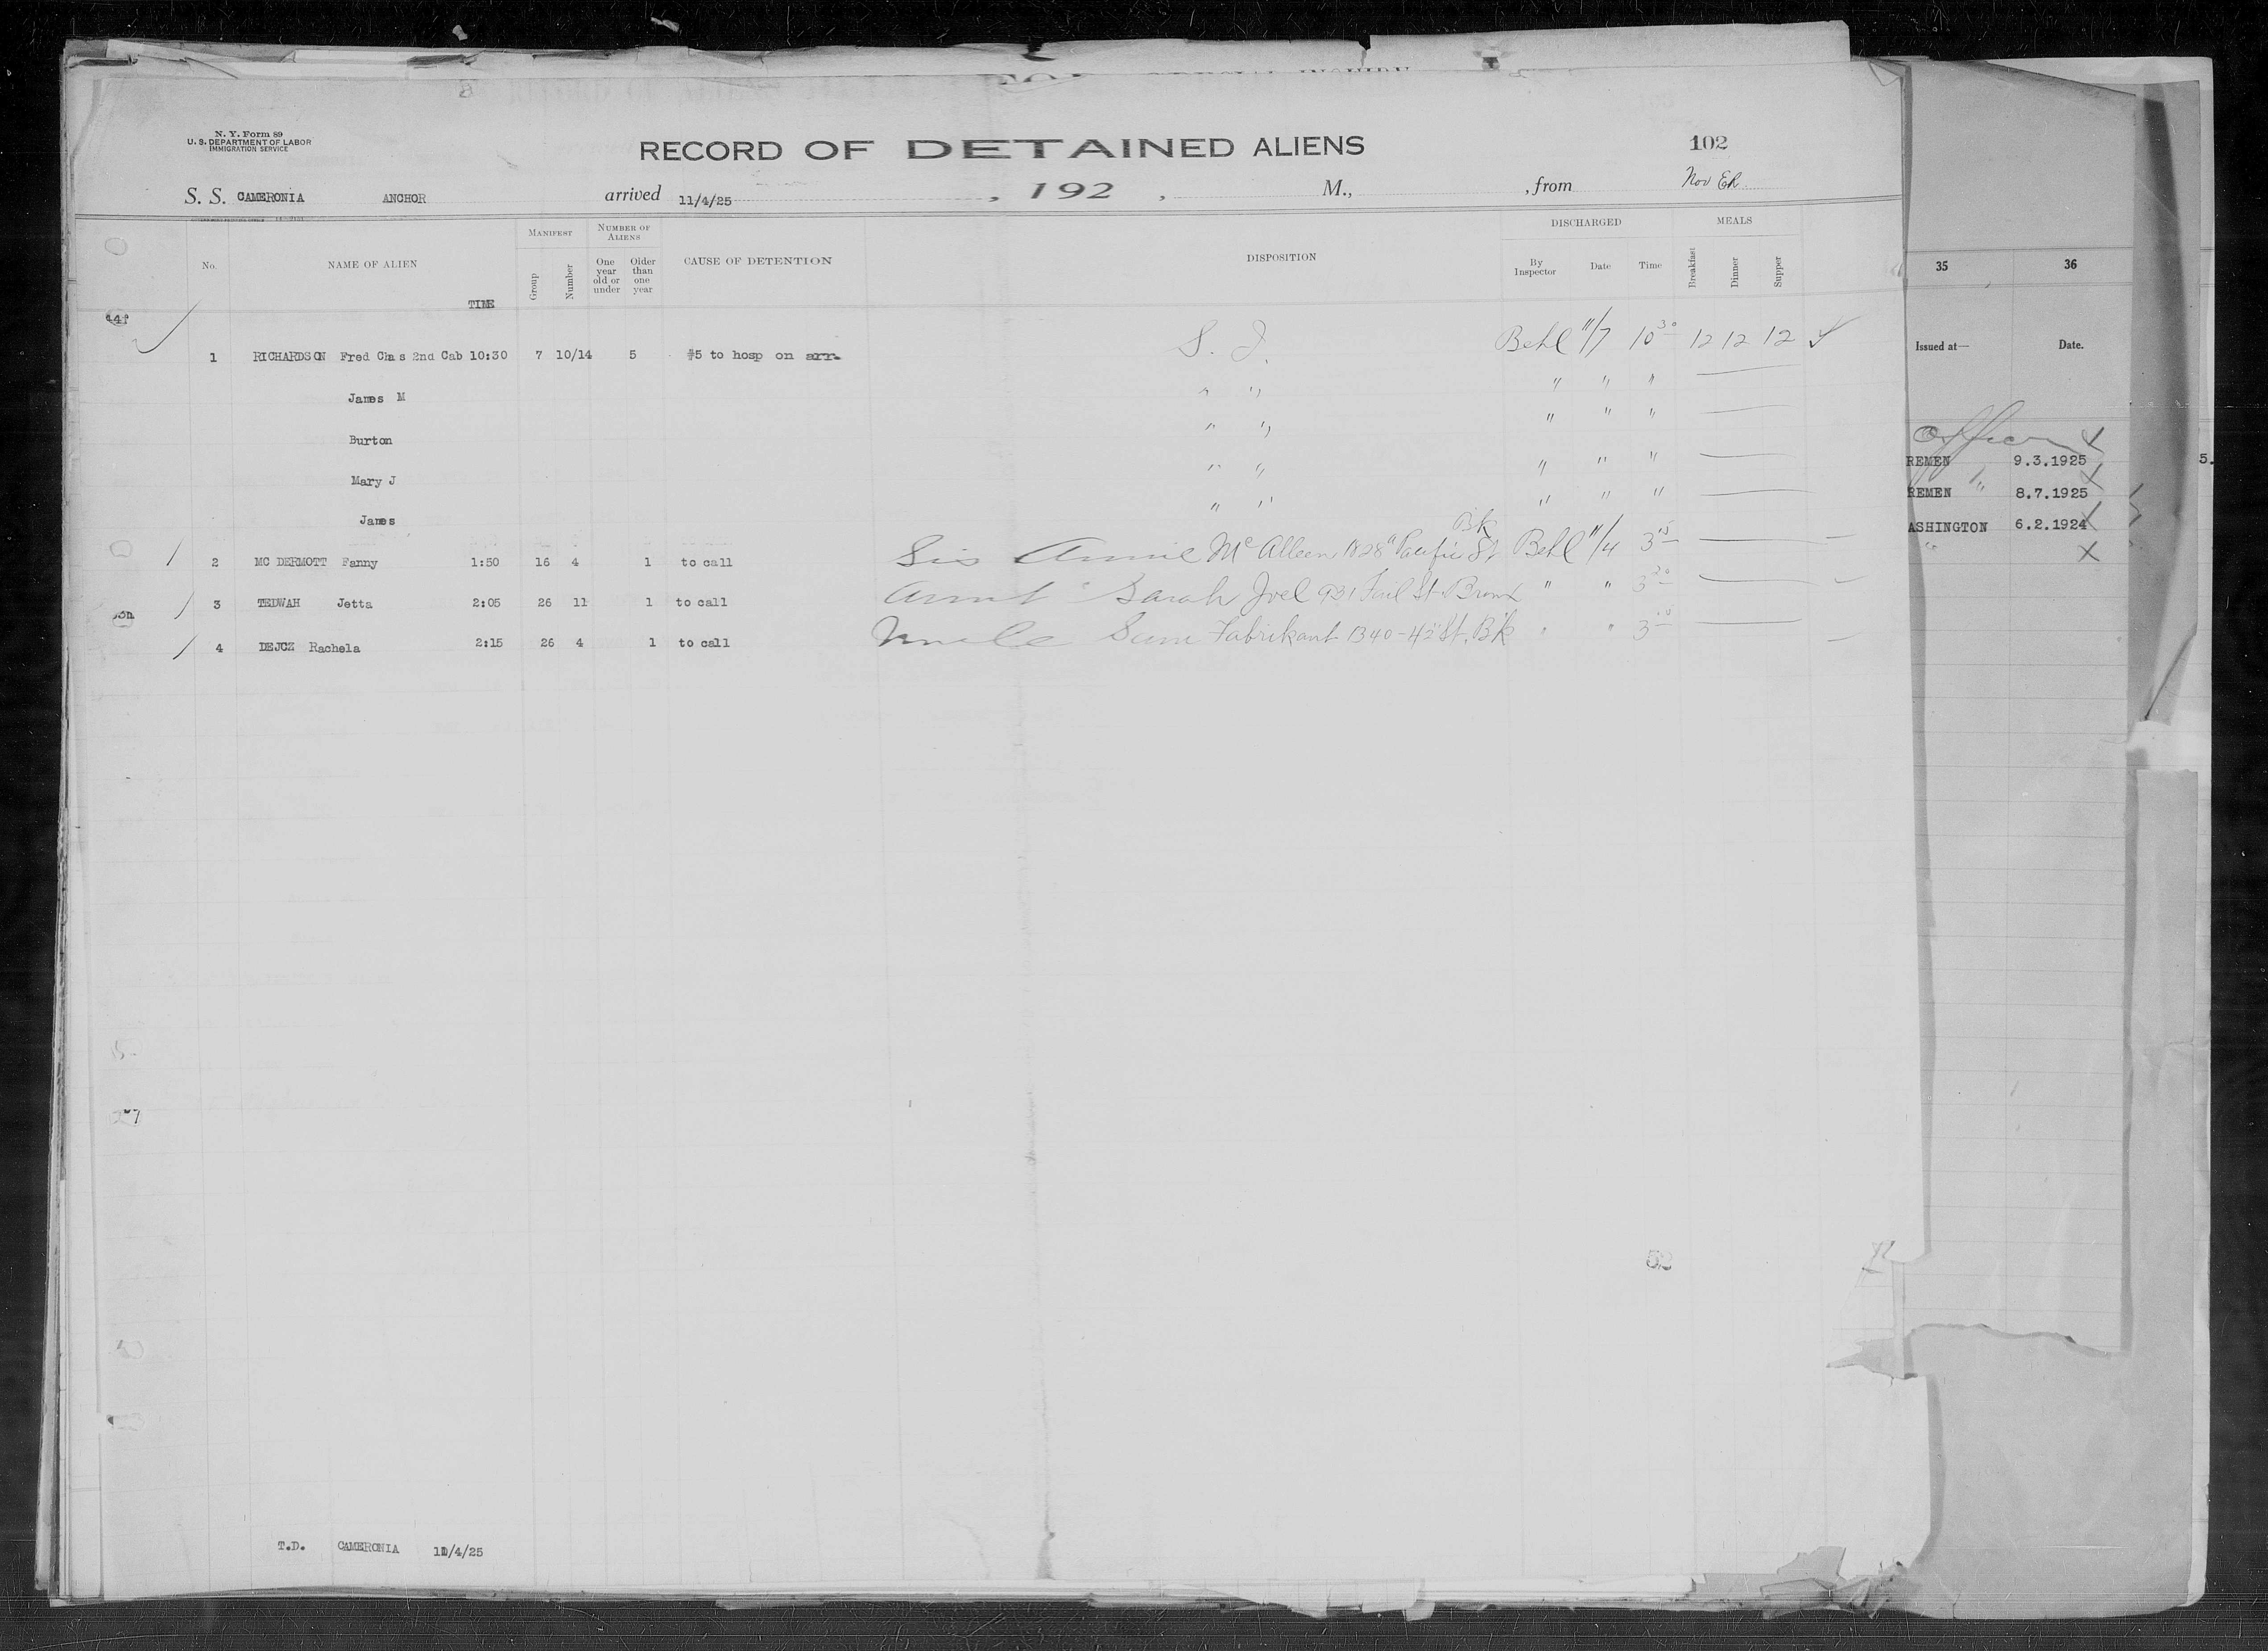 N. Y. Form 89
U. S. DEPARTMENT OF LABOR
IMMIGRATION SERVICE
RECORD OF DETAINED ALIENS
102
S. S. CAMERONIA ANCHOR arrived 11/4/25 , 192 , M., , from Nov
No. NAME OF ALIEN MANIFEST NUMBER OF ALIENS CAUSE OF DETENTION DISPOSITION DISCHARGED MEALS
Group Number One year old or under Older than one year By Inspector Date Time Breakfast Dinner Supper
TIME
1 RICHARDSON Fred Chas 2nd Cab 10:30 7 10/14 5 #5 to hosp on arr. S. I. Behl 11/7 10 30 12 12 12
James M " " " " "
Burton " " " " "
Mary J " " " " "
James " " " " "
2 MC DERMOTT Fanny 1:50 16 4 1 to call Sis Annie McAlleen 1828a Pacific St Bk Behl 11/4 3 15
3 TEDWAH Jetta 2:05 26 11 1 to call Aunt Sarah Joel 931 Fail St. Bronx " " 3 20
4 DEJCZ Rachela 2:15 26 4 1 to call Uncle Sam Fabrikant 1340-42" St. Bk " " 3
52
T.D. CAMERONIA 11/4/25
35 36
Issued at— Date.
REMEN 9.3.1925
REMEN " 8.7.1925
ASHINGTON 6.2.1924
5.